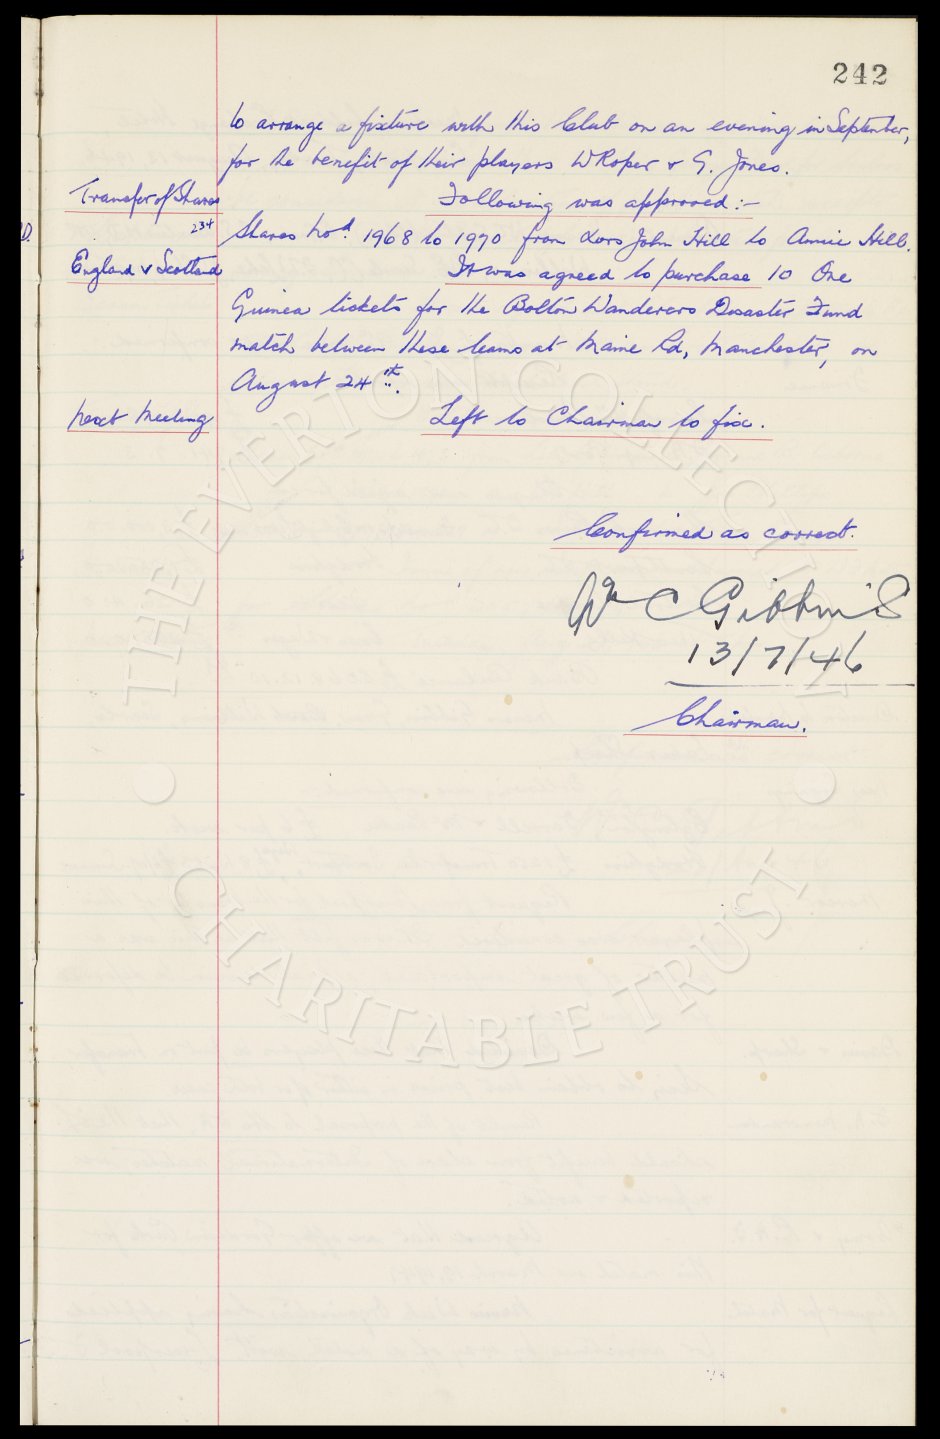 242
to arrange a fixture with this Club on an evening in September,
for the benefit of their players W Roper & G. Jones.
Transfer of Shares
Following was approved:-
234
Shares Nod. 1968 to 1970 from Exors John Hill to Annie Hill.
England v Scotland
It was agreed to purchase 10 One
Guinea tickets for the Bolton Wanderers Disaster Fund
match between these teams at Maine Rd, Manchester, on
August 24th.
Next Meeting
Left to Chairman to fix.
Confirmed as correct.
Wm C Gibbins
13/7/46
Chairman.
THE EVERTON COLLECTION
CHARITABLE TRUST